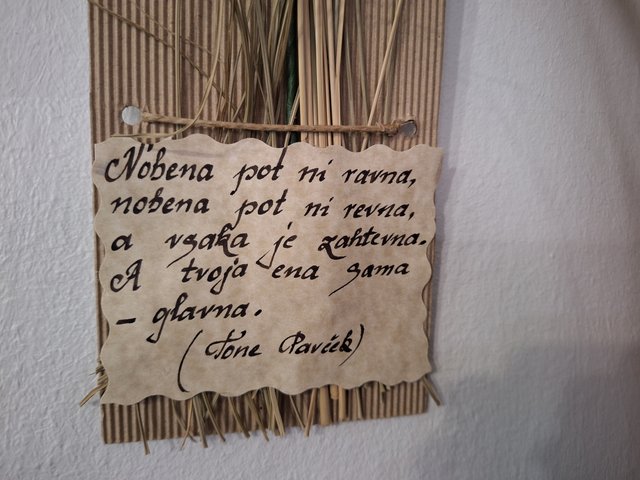 Nobena pot ni ravna,
nobena pot ni revna,
a vsaka je zahtevna.
A tvoja ena sama
– glavna.
(Tone Pavček)